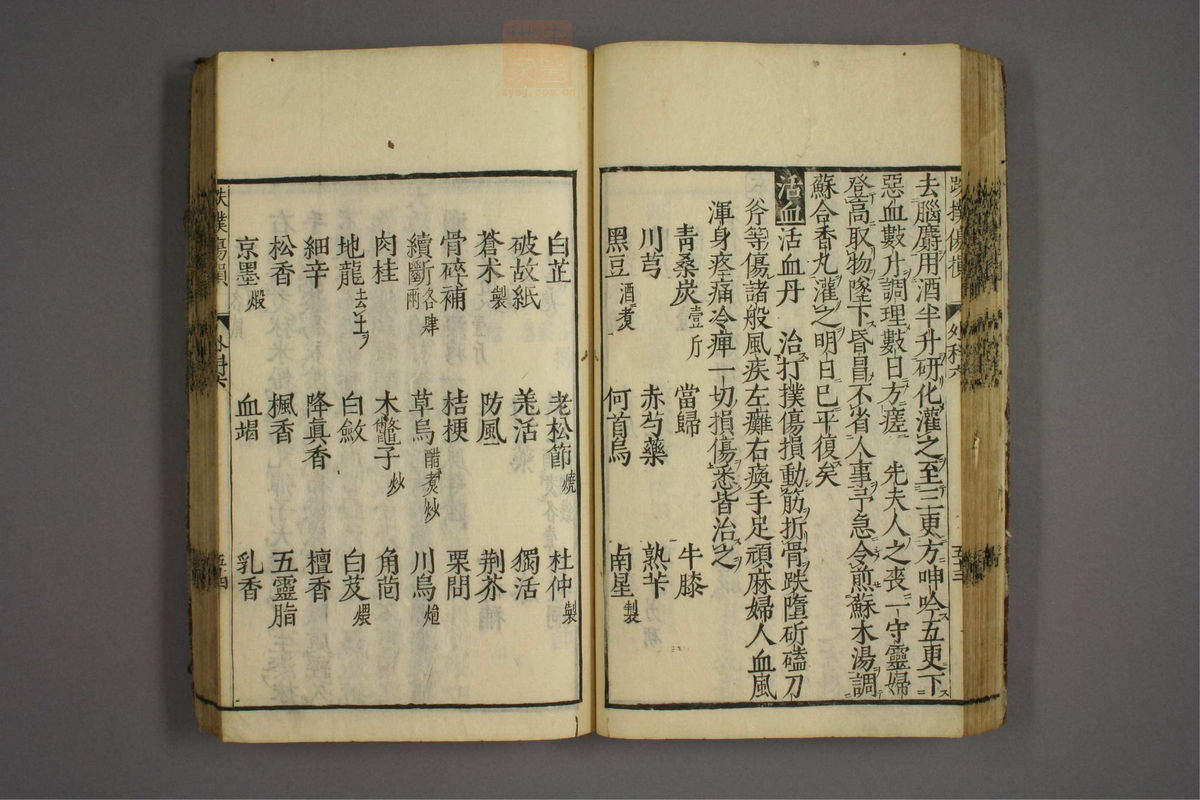 跌撲傷損 外科六 五十三
去腦麝用酒半升研化灌之至三更方呻吟五更下
惡血數升調理數日方瘥 先夫人之喪一守靈婦
登高取物墜下昏昌不省人事予急令煎蘇木湯調
蘇合香丸灌之明日已平復矣
活血 活血丹 治打撲傷損動筋折骨跌墮斫磕刀
斧等傷諸般風疾左癱右瘓手足頑麻婦人血風
渾身疼痛冷痺一切損傷悉皆治之
靑桑炭壹斤 當歸 牛膝
川芎 赤芍藥 熟苄
黑豆酒煮 何首烏 南星製
白芷 老松節燒 杜仲製
破故紙 羌活 獨活
蒼术製 防風 荆芥
骨碎補 桔梗 栗間
續斷各肆兩 草烏醋煮炒 川烏炮
肉桂 木鼈子炒 角茴
地龍去土 白斂 白芨煨
細辛 降眞香 檀香
松香 楓香 五靈脂
京墨煅 血竭 乳香
跌撲傷損 外科六 五十四